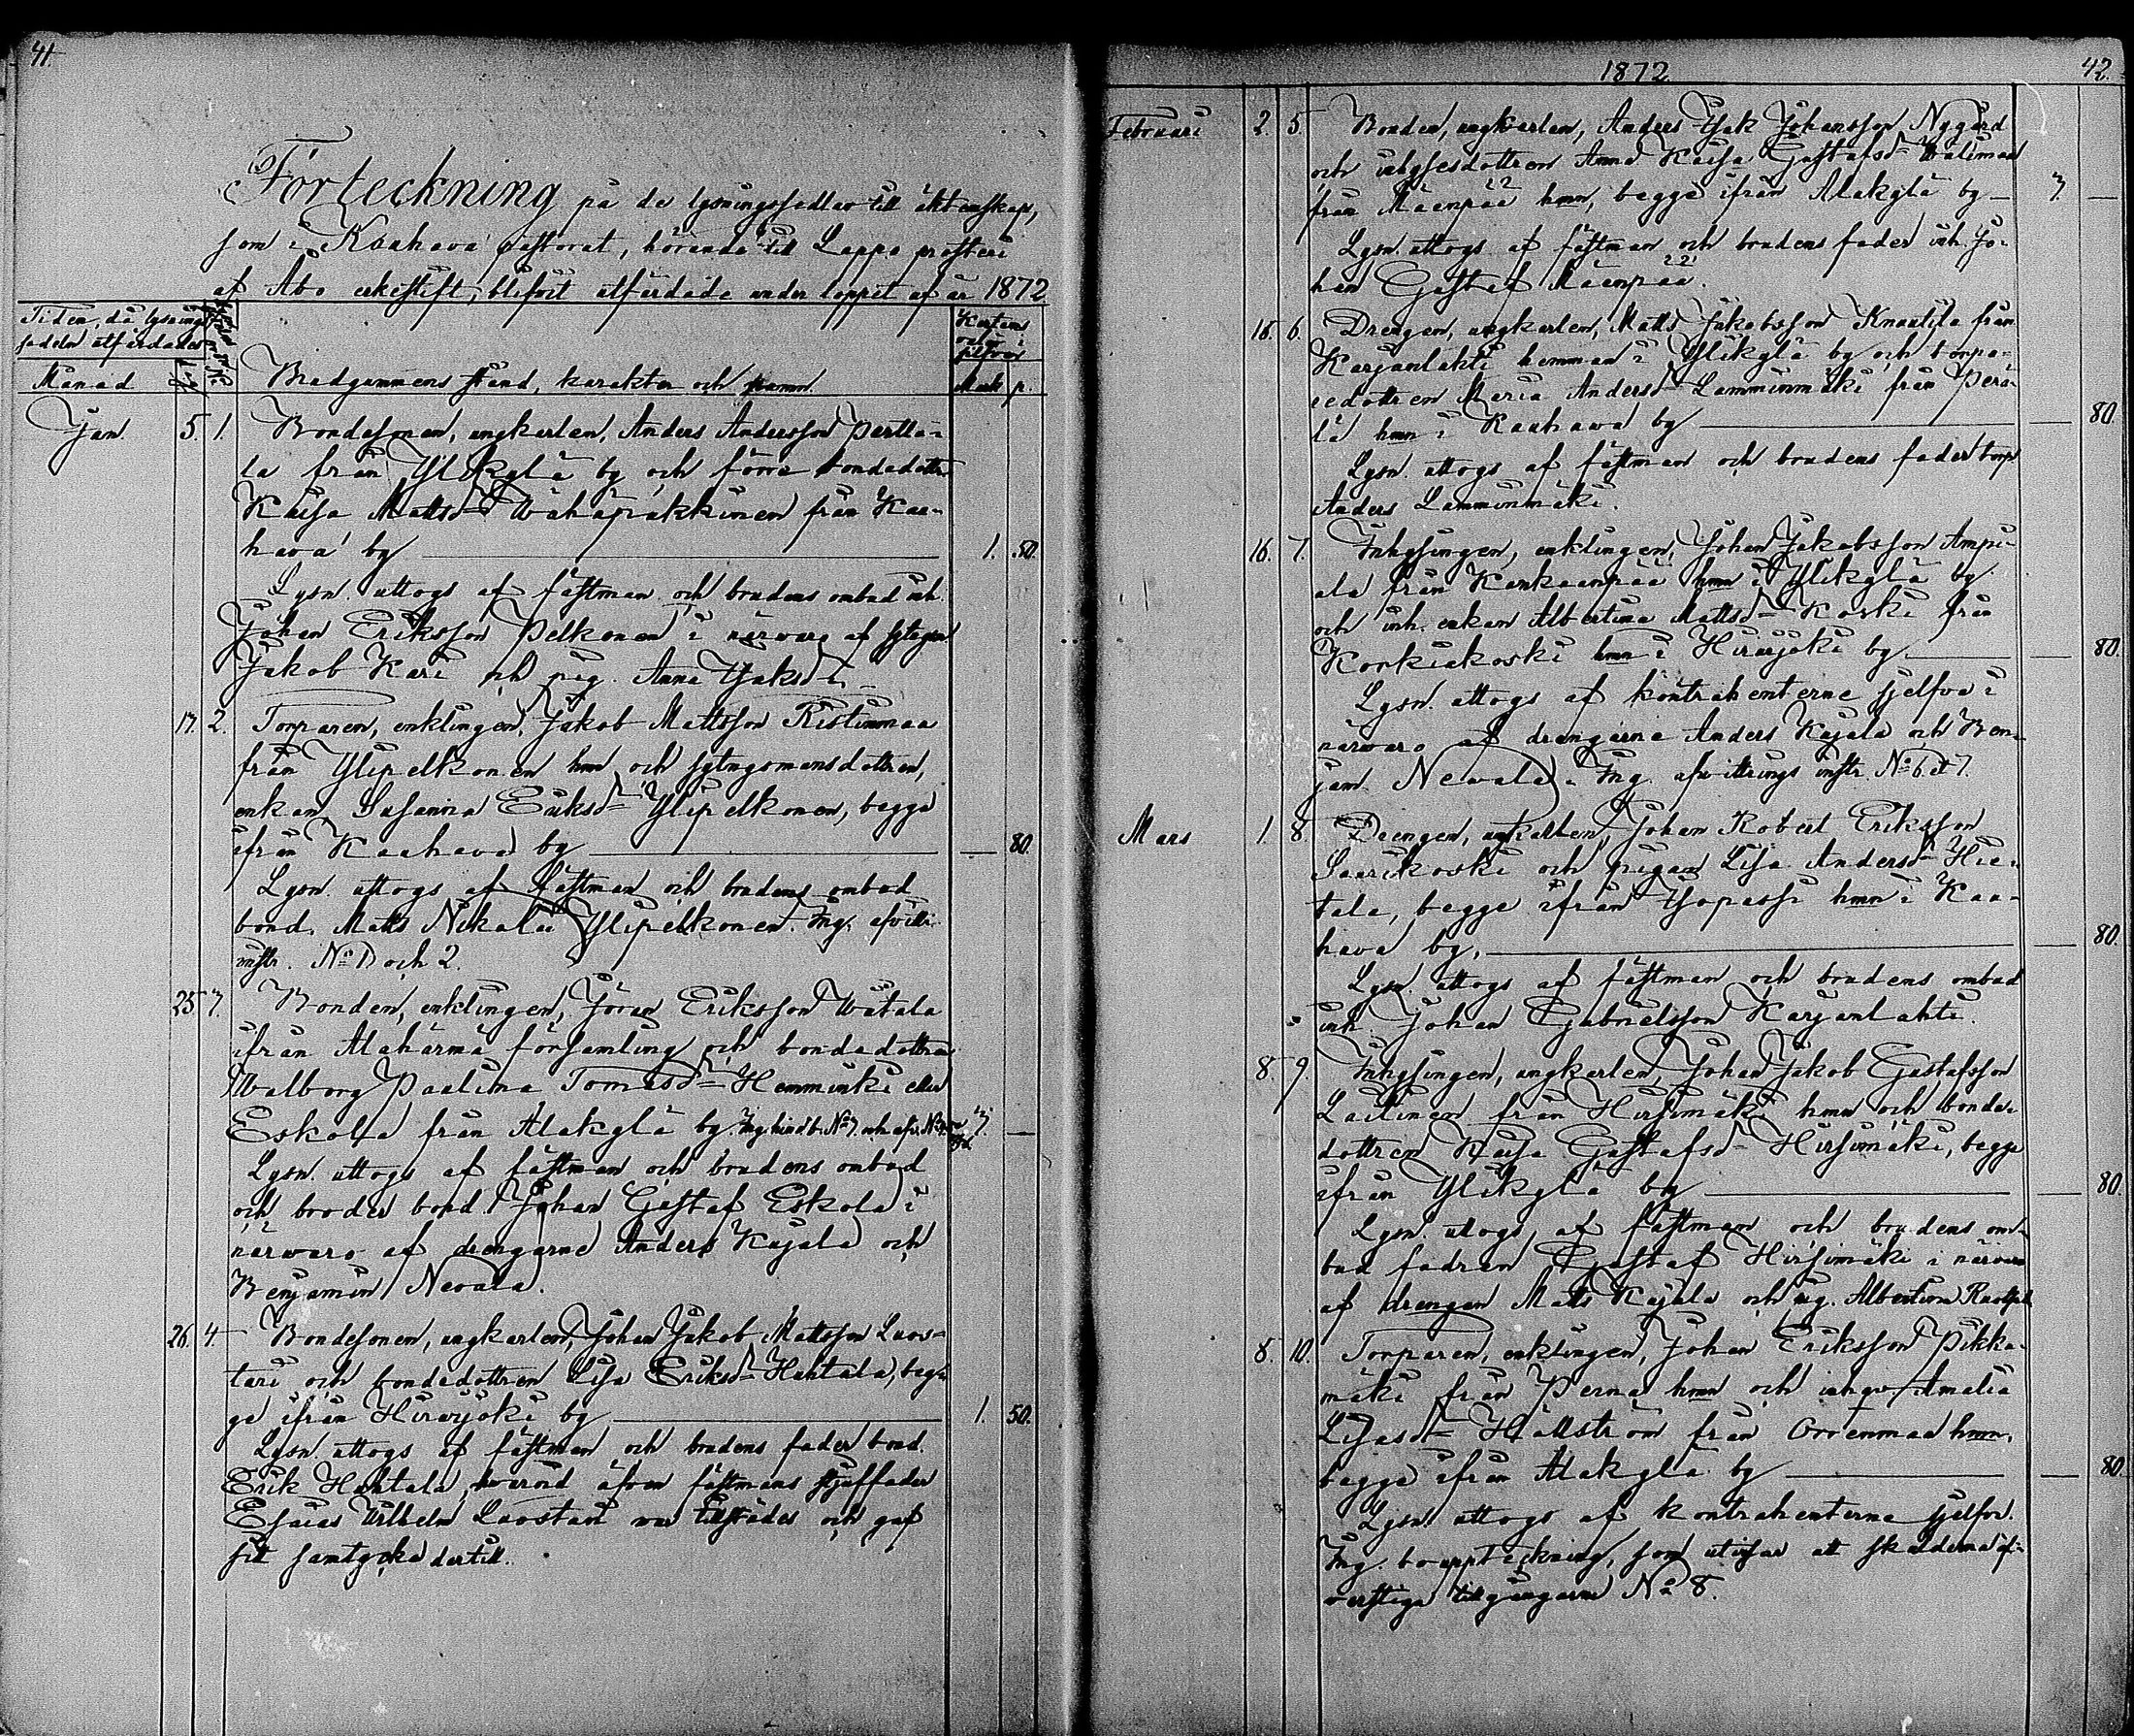 41.
Förteckning på de lysningssedlar till äktenskap,
som i Kauhava pastorat, hörande till Lappo prosteri
af Åbo erkestift, blifvit utfärdade under loppet af år 1872
Tiden, då lysnings
sedeln utfärdades
Kartans
valör i
silfver
Månad
Brudgummens stånd, karakter och namn.
Mark p.
Jan. 5. 1. Bondesonen, ungkarlen, Anders Andersson Perttä-
lä från Ylikylä by och förra bondedottr.
Kaisa Mattsd:r Wähäpäkkinen från Kau-
hava by 1. 50.
Lysn. uttogs af fästman och brudens ombud inh.
Johan Eriksson Pelkonen i närvaro af sytgen
Jakob Kari och pig. Anna Jaksd:r
17. 2. Torparen, enklingen, Jakob Mattsson Ristimmaa
från Ylipelkonen hmn och sytngsmansdottren,
enkan Susanna Eriksd:r Ylipelkonen, begge
ifrån Kauhava by 80.
Lysn. uttogs af fästman och brudens ombud
bond. Matts Nikolai Ylipelkonen. Ing. afvittr.
instr. No 1 och 2.
25. 3. Bonden, enklingen, Jöran Eriksson Wätälä
ifrån Alahärmä församling och bondedottren
Walborg Paulina Tomasd:r Hemminki eller
Eskola från Alakylä by. 3.
Lysn. uttogs af fästman och brudens ombud
och broder bond. Johan Gustaf Eskola i
närvaro af drengarne Anders Kujala och
Benjamin Nevala.
26. 4. Bondesonen, ungkarlen, Johan Jakob Mattsson Luos-
tari och bondedottren Lisa Eriksd:r Huhtala, beg-
ge ifrån Hirvijoki by 1. 50.
Lysn. uttogs af fästman och brudens fader bond.
Erik Huhtala, hvarvid äfven fästmans stjuffader
Esaias Wilhelm Luostari var tillstädes och gaf
sitt samtycke dertill.
1872
42.
Februari 2. 5. Bonden, ungkarlen, Anders Isak Johansson Nygård
och inhysesdottren Anna Kaisa Gustafsd:r Waliman
från Mäenpää hmn, begge ifrån Alakylä by 3.
Lysn. uttogs af fästman och brudens fader inh. Jo-
han Gustaf Mäenpää.
15. 6. Drengen, ungkarlen, Matts Jakobsson Knuutila från
Karjanlahti hemman i Ylikylä by och torpa-
redottren Maria Andersd:r Lamminmäki från Perä-
lä hmn i Kauhava by 80.
Lysn. uttogs af fästman och brudens fader torp.
Anders Lamminmäki.
16. 7. Inhysingen, enklingen, Johan Jakobsson Ampi-
ala från Kankaanpää hmn i Ylikylä by
och inh. enkan Albertina Mattsd:r Koski från
Korkiakoski hmn i Hirvijoki by 80.
Lysn. uttogs af kontrahenterne sjelfva i
närvaro af drengarne Anders Kujala och Ben-
jam. Nevala. Ing. afvittrings instr. No 6 et 7.
Mars 1. 8. Drengen, ungkarlen, Johan Robert Eriksson
Saarikoski och pigan Lisa Andersd:r Hie-
tala, begge ifrån Isopassi hmn i Kau-
hava by, 80.
Lysn. uttogs af fästman och brudens ombud
inh. Johan Gabrielsson Karjanlahti.
8. 9 Inhysingen, ungkarlen, Johan Jakob Gustafsson
Laitinen från Hirsimäki hmn och bonde-
dottren Kaisa Gustafsd:r Hirsimäki, begge
ifrån Ylikylä by 80.
Lysn. uttogs af fästman och brudens om-
bud fadren Gustaf Hirsimäki i närvaro
af drengen Matts Kujala och pig. Albertina
8. 10. Torparen, enklingen, Johan Eriksson Pikka-
mäki från Perna hmn och inhqv. Amalia
Lisasd:r Hällström från Orrenmaa hmn,
begge ifrån Alakylä by 80.
Lysn. uttogs af kontrahenterne sjelfve.
Ing. bouppteckning, som utvisar att skulderna öf-
verstiga tillgångarne No 8.